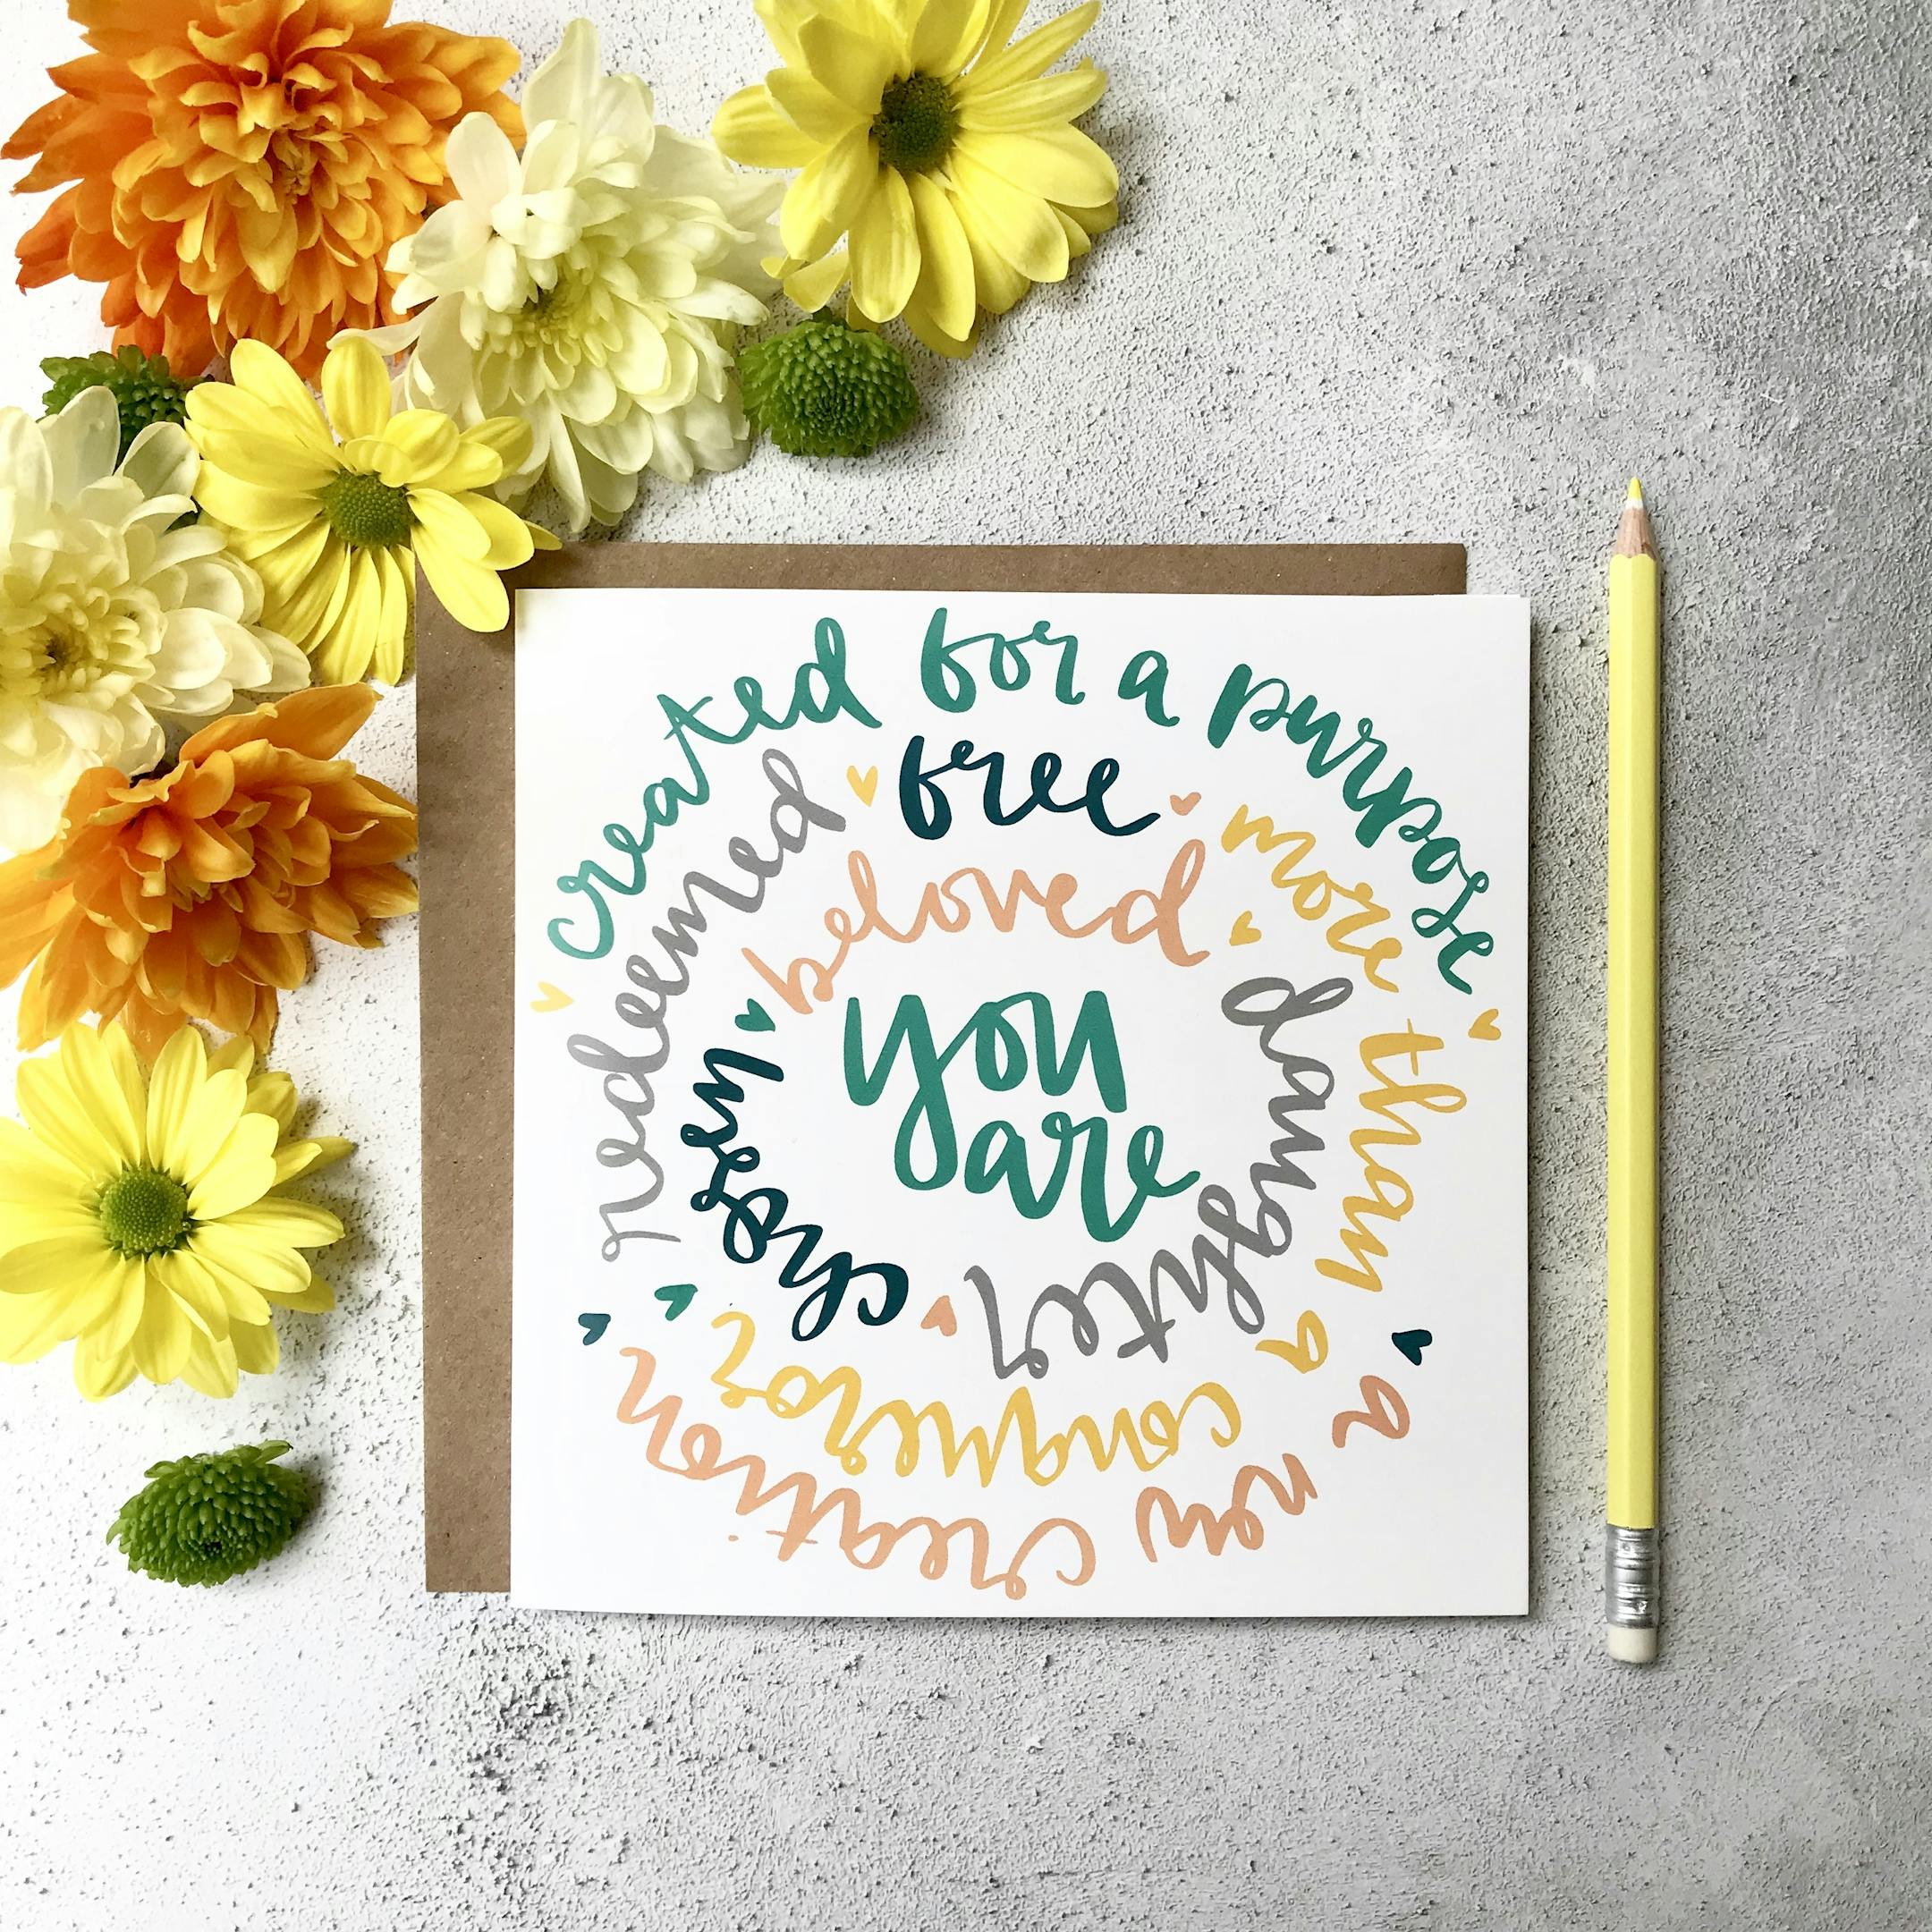 you
are
beloved
daughter
chosen
free
more than a
conqueror
redeemed
created for a purpose
a new creation